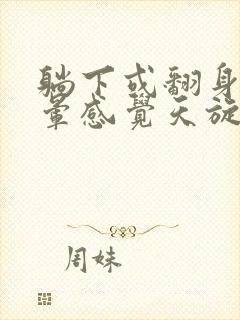 躺下或翻身
暈感覺天旋
周妹